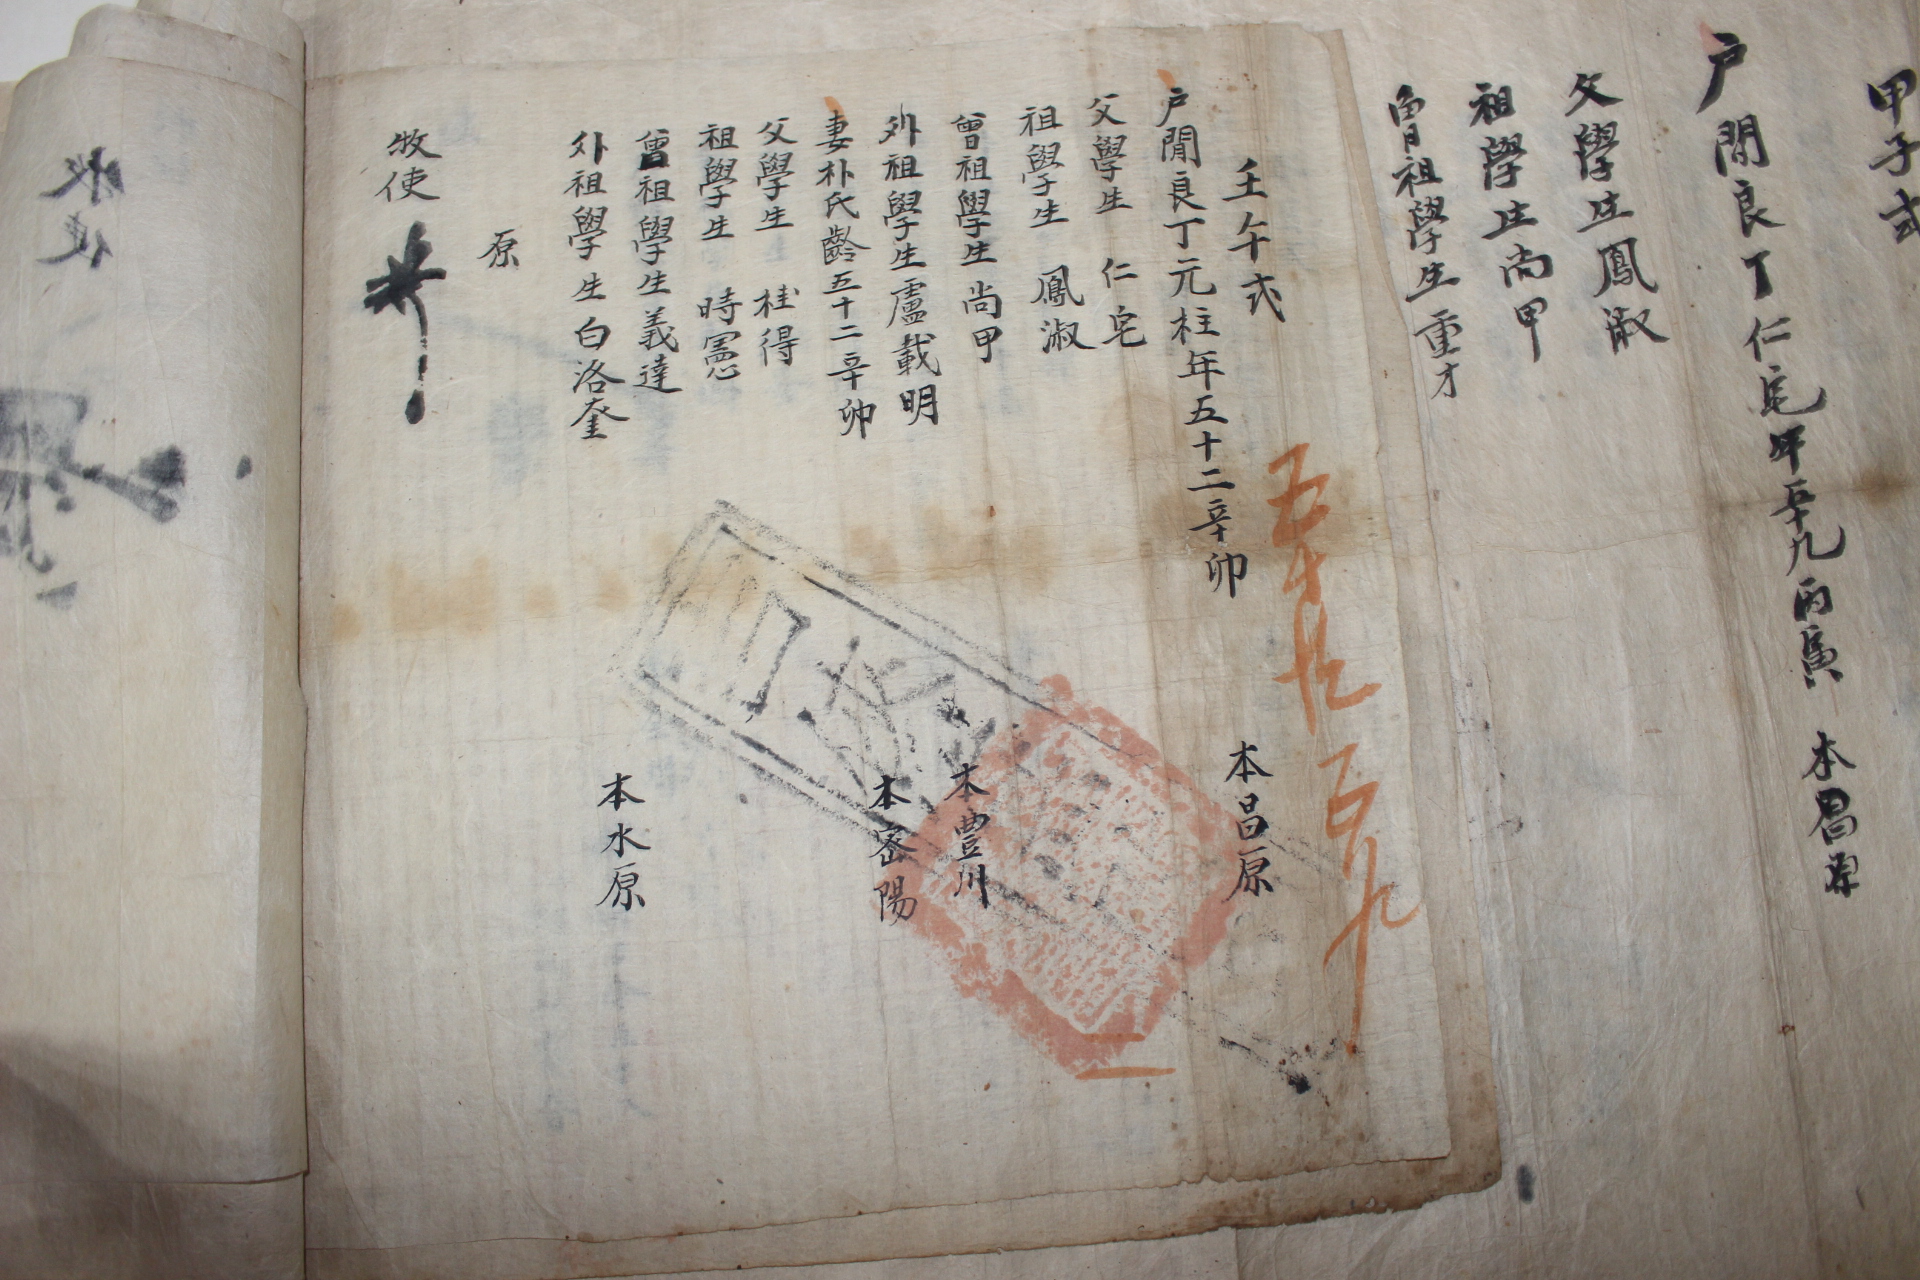 甲子式
戶閒良丁仁宅年五十九丙寅 本昌原
父學生鳳淑
祖學生尚甲
曾祖學生重才
壬午式
戶閒良丁元柱年五十二辛卯 本昌原
父學生 仁宅
祖學生 鳳淑
曾祖學生尚甲
外祖學生盧載明 本豊川
妻朴氏齡五十二辛卯 本密陽
父學生 桂得
祖學生 時憲
曾祖學生義達
外祖學生白洛奎 本水原
原
牧使
牧使